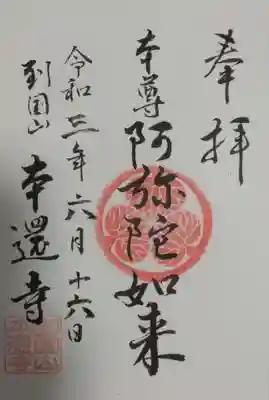 奉拝
本尊 阿弥陀如来
令和三年六月十六日
到国山 本還寺